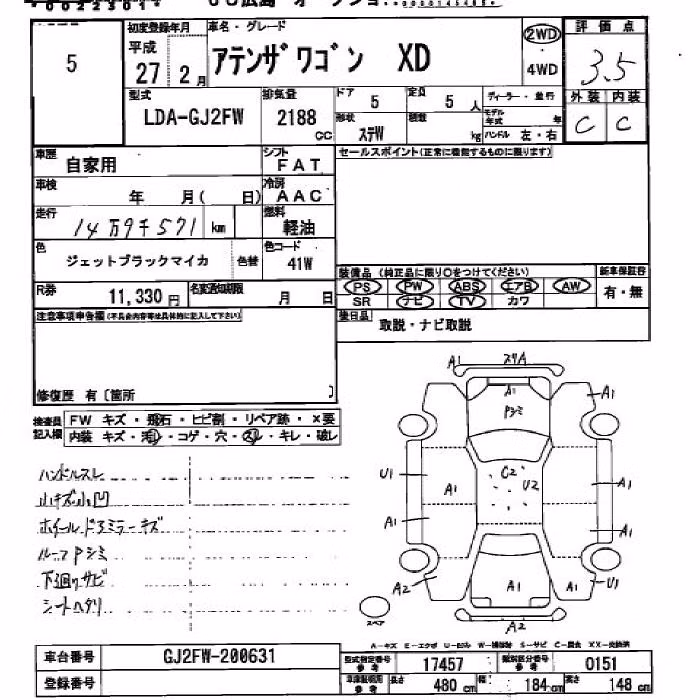 5
初度登録年月
車名・グレード
平成
27 2月
アテンザワゴン XD
2WD
4WD
評価点
3.5
外装 内装
C C
型式
LDA-GJ2FW
排気量
2188 CC
ドア 5
定員 5 人
形状 ステW
積載 kg
ディーラー・並行
モデル年式 年
ハンドル 左・右
車歴 自家用
シフト FAT
セールスポイント(正常に機能するものに限ります)
車検 年 月( 日)
冷房 AAC
走行 14万9千571 km
燃料 軽油
色 ジェットブラックマイカ 色替
色コード 41W
R券 11,330 円
名変通知期限 月 日
装備品 (純正品に限り○をつけてください)
新車保証書
PS PW ABS エアB AW 有・無
SR ナビ TV カワ
後日品 取説・ナビ取説
注意事項申告欄(不具合内容等は具体的に記入して下さい)
修復歴 有〔箇所 〕
検査員記入欄
FW キズ・飛石・ヒビ割・リペア跡・×要
内装 キズ・汚れ・コゲ・穴・スレ・キレ・破レ
ハンドルスレ
小キズ小凹
ホイールドアミラーキズ
ルーフPシミ
下廻りサビ
シートヘタリ
A1 スリA
A1 A1
Pシミ
U1 C2 U2
A1 A1 A1
A1 A1
A2 A1 A1 U1
スペア A2
A-キズ E-エクボ U-凹み W-補修跡 S-サビ C-腐食 XX-交換済
車台番号 GJ2FW-200631
登録番号
型式指定番号 参考 17457
類別区分番号 参考 0151
車庫証明用 参考 長さ 480 cm 幅 184 cm 高さ 148 cm